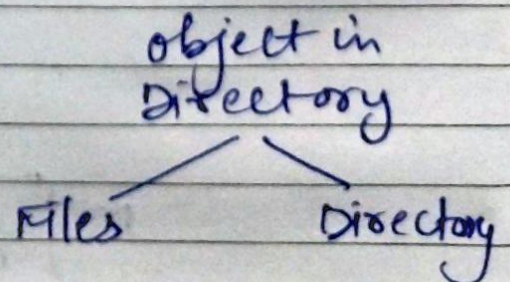 object in
Directory
Files Directory